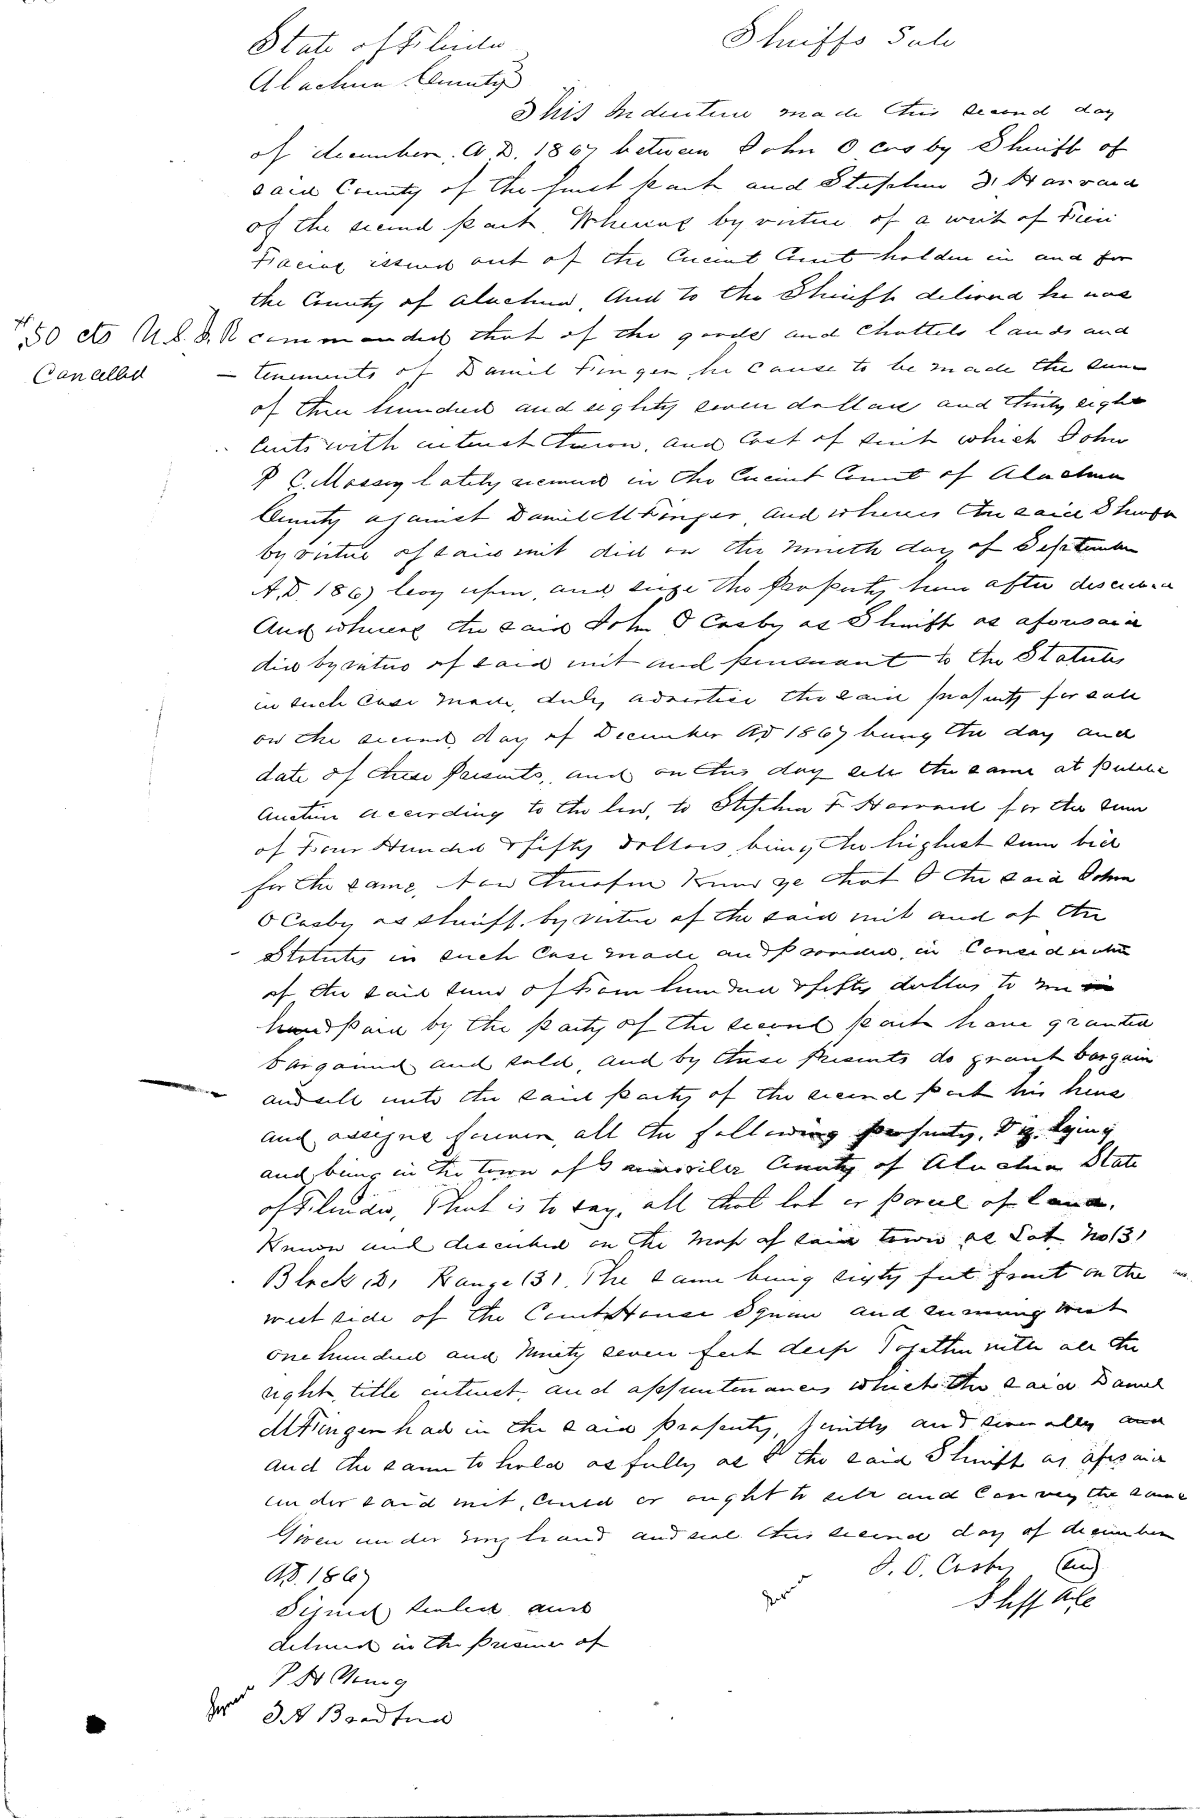 State of Florida Sheriffs Sale
Alachua County
This Indenture made this second day
of december. A.D. 1867 between John O Casby Sheriff of
said County of the first part and Stephen F. Harvard
of the second part. Whereas by virtue of a writ of Fieri
Facias issued out of the Circuit Court holden in and for
the County of Alachua, And to the Sheriff delivered he was
50 cts U.S.I.R commanded that of the goods and Chattels lands and
Cancelled tenements of Daniel Finger, he cause to be made the sum
of three hundred and eighty seven dollars and thirty eight
Cents with interest thereon, and Cost of suit which John
C. Massey lately recovered in the Circuit Court of Alachua
County against Daniel M Finger, and whereas the said Sheriff
by virtue of said writ did on the nineth day of September
A,D. 1867 levy upon, and seize the Property here after described
And whereas the said John O Casby as Sheriff as aforesaid
did by virtue of said writ and pursuant to the Statutes
in such Case made, duly advertise the said property for sale
on the second day of December AD 1867 being the day and
date of these Presents, and on this day sell the same at public
auction according to the law, to Stephen F Harvard for the sum
of Four Hundred & fifty Dollars, being the highest sum bid
for the same, Now therefore Know ye that I the said John
O Casby as sheriff. by virtue of the said writ and of the
Statutes in such Case made and Provided, in Consideration
of the said sum of Four hundred & fifty dollars to me in
hand Paid by the party of the second part have granted
bargained and sold, and by these Presents do grant bargain
and sell unto the said party of the second part his heirs
and assigns forever, all the following property, Viz. lying
and being in the town of Gainesville County of Alachua State
of Florida, That is to say, all that lot or parcel of land.
Known and described on the map of said town as Lot No (3)
Block (2) Range (3). The same being sixty feet front on the
west side of the Court House Square and running west
one hundred and Ninety seven feet deep Together with all the
right, title interest, and appurtenances which the said Daniel
M Finger had in the said property, jointly and severally and
and the same to hold as fully as I the said Sheriff as aforsaid
under said writ, could or ought to sell and Convey the same
Given under my hand and seal this second day of december
AD. 1867 J. O. Casby (seal)
Signed, sealed and Shff A.C
delivered in the presence of
P H Young
Bradford